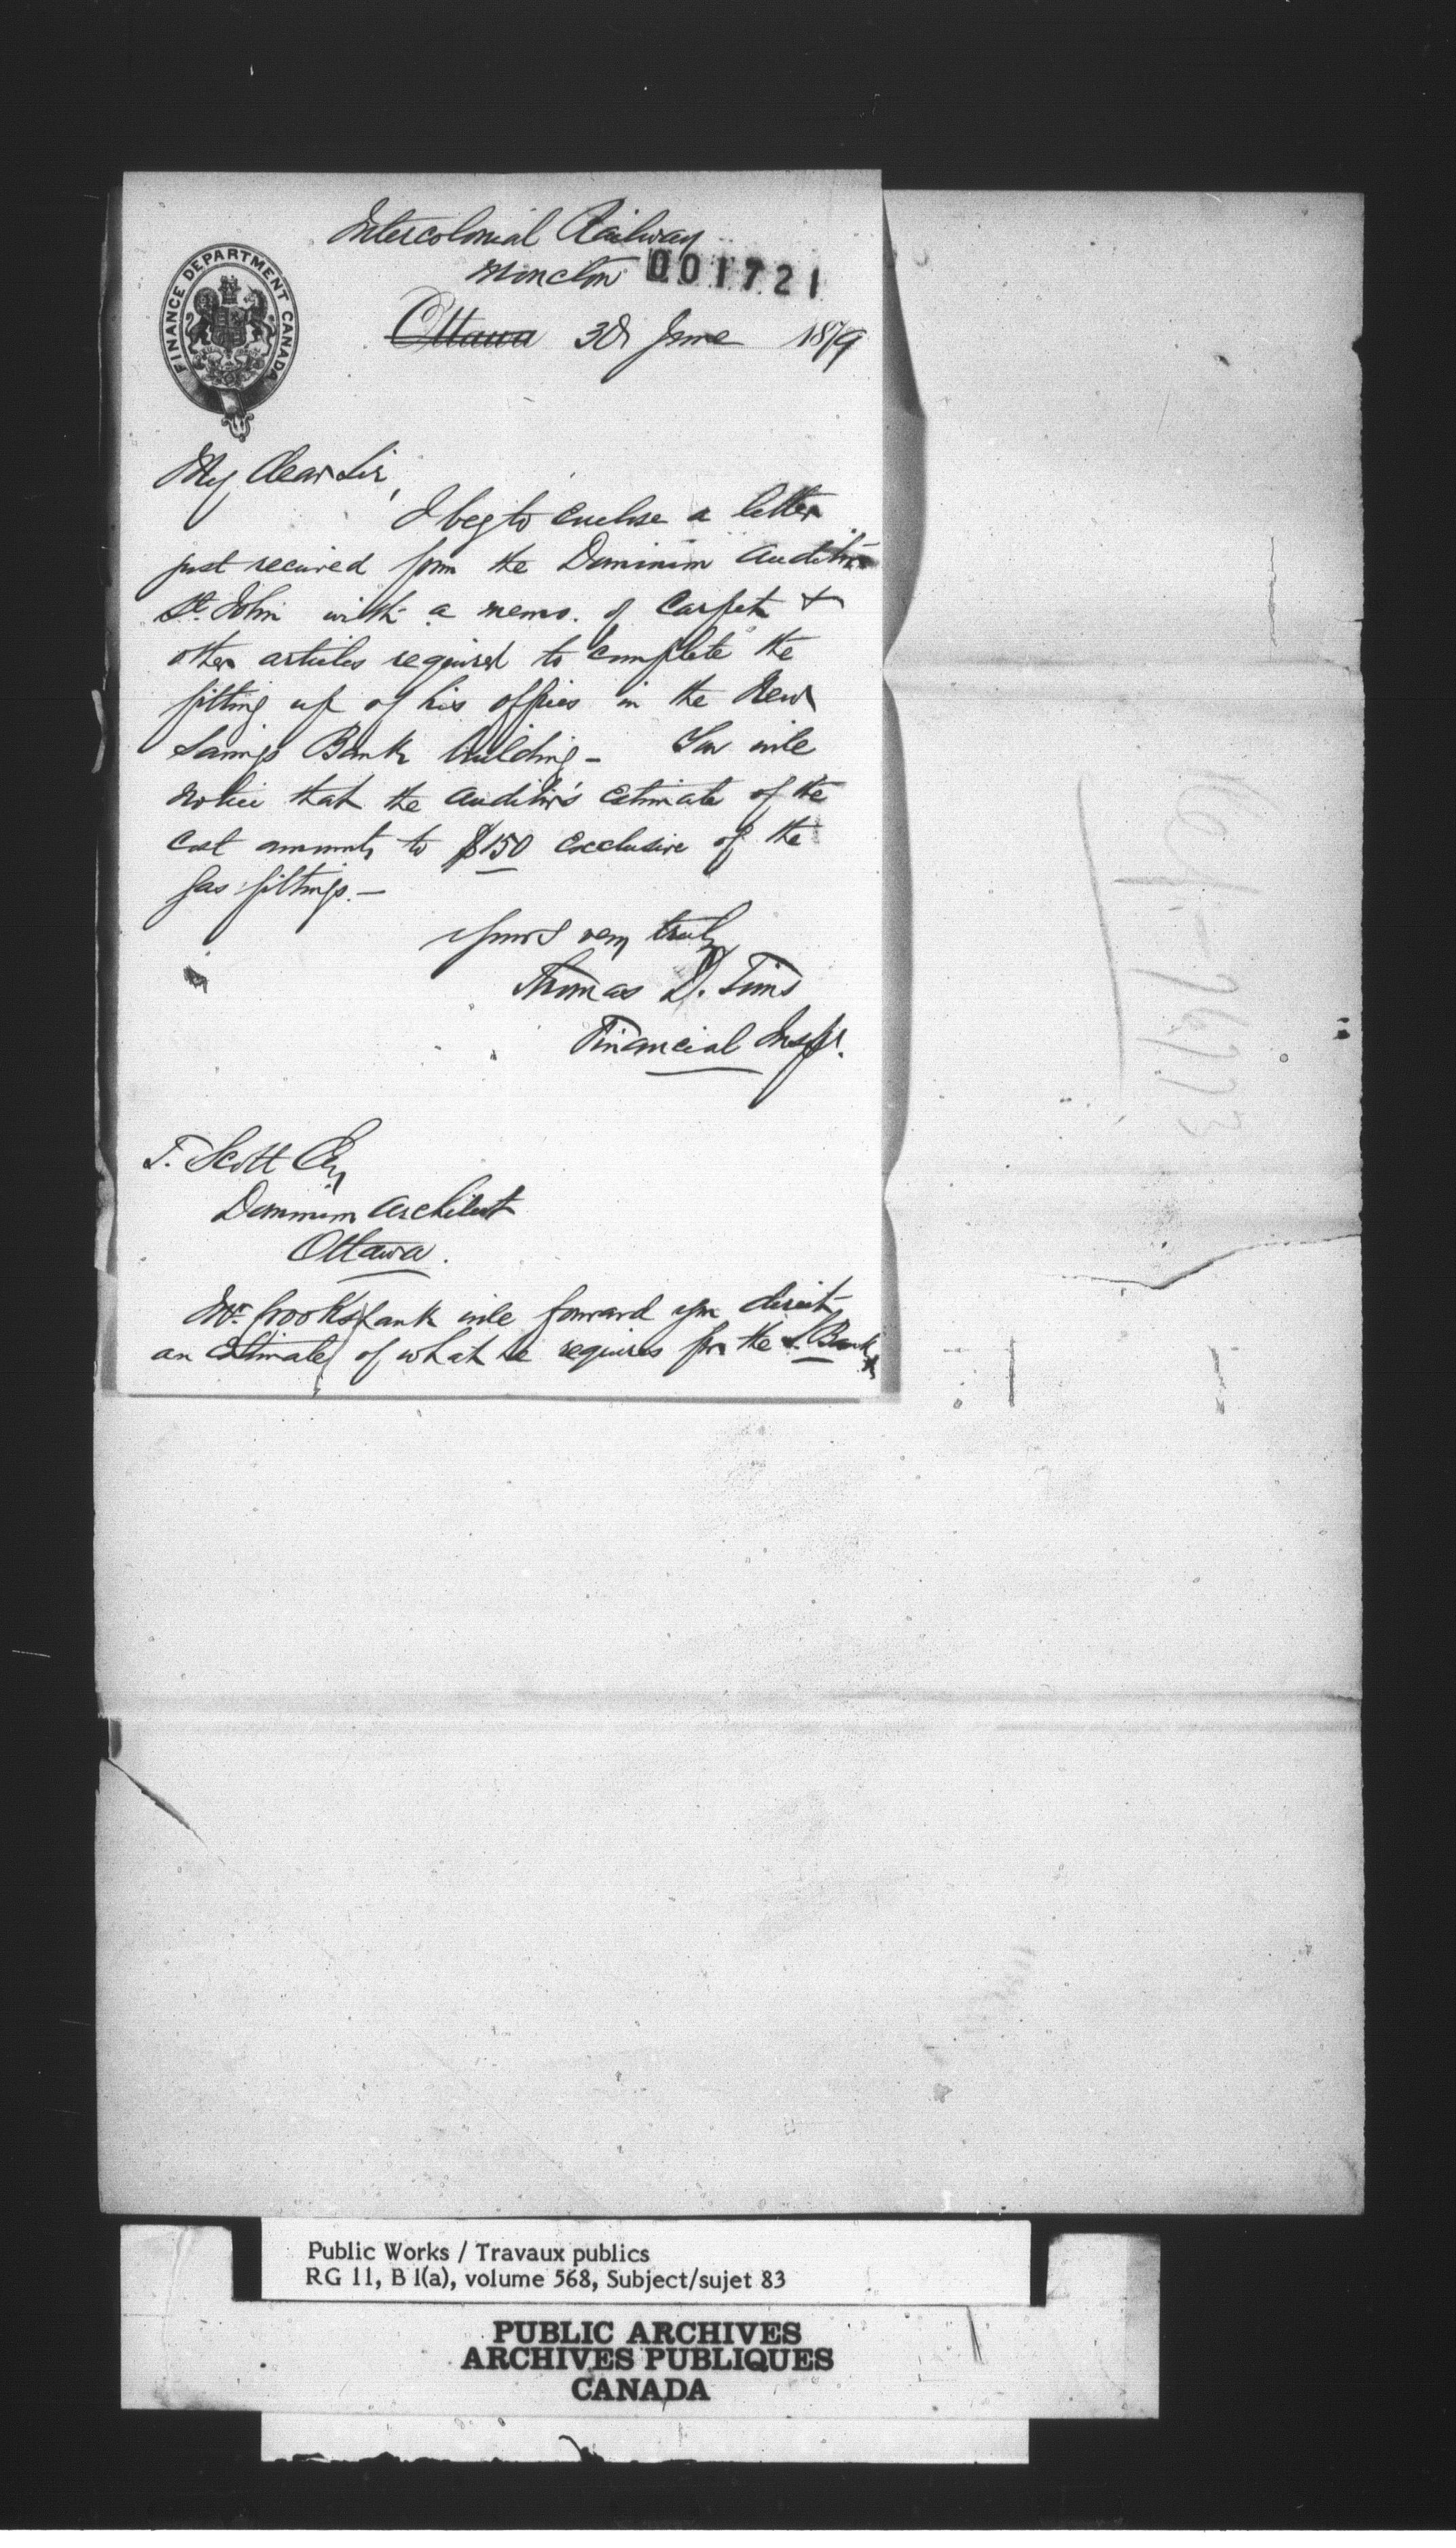 Intercolonial Railway
Moncton 001721
Ottawa 30 June 1879
FINANCE DEPARTMENT CANADA
My dear Sir,
I beg to enclose a letter
just received from the Dominion Auditor
St. John with a memo. of Carpets &
other articles required to complete the
fitting up of his offices in the New
Savings Bank building - You will
notice that the Auditor's estimate of the
cost amounts to $150 exclusive of the
gas fittings. -
Yours very truly
Thomas D. Tims
Financial Inspr.
T. Scott Esq
Dominion Architect
Ottawa.
Mr. Crookshank will forward you direct
an estimate of what he requires for the S. Bank
Public Works / Travaux publics
RG 11, B 1(a), volume 568, Subject/sujet 83
PUBLIC ARCHIVES
ARCHIVES PUBLIQUES
CANADA